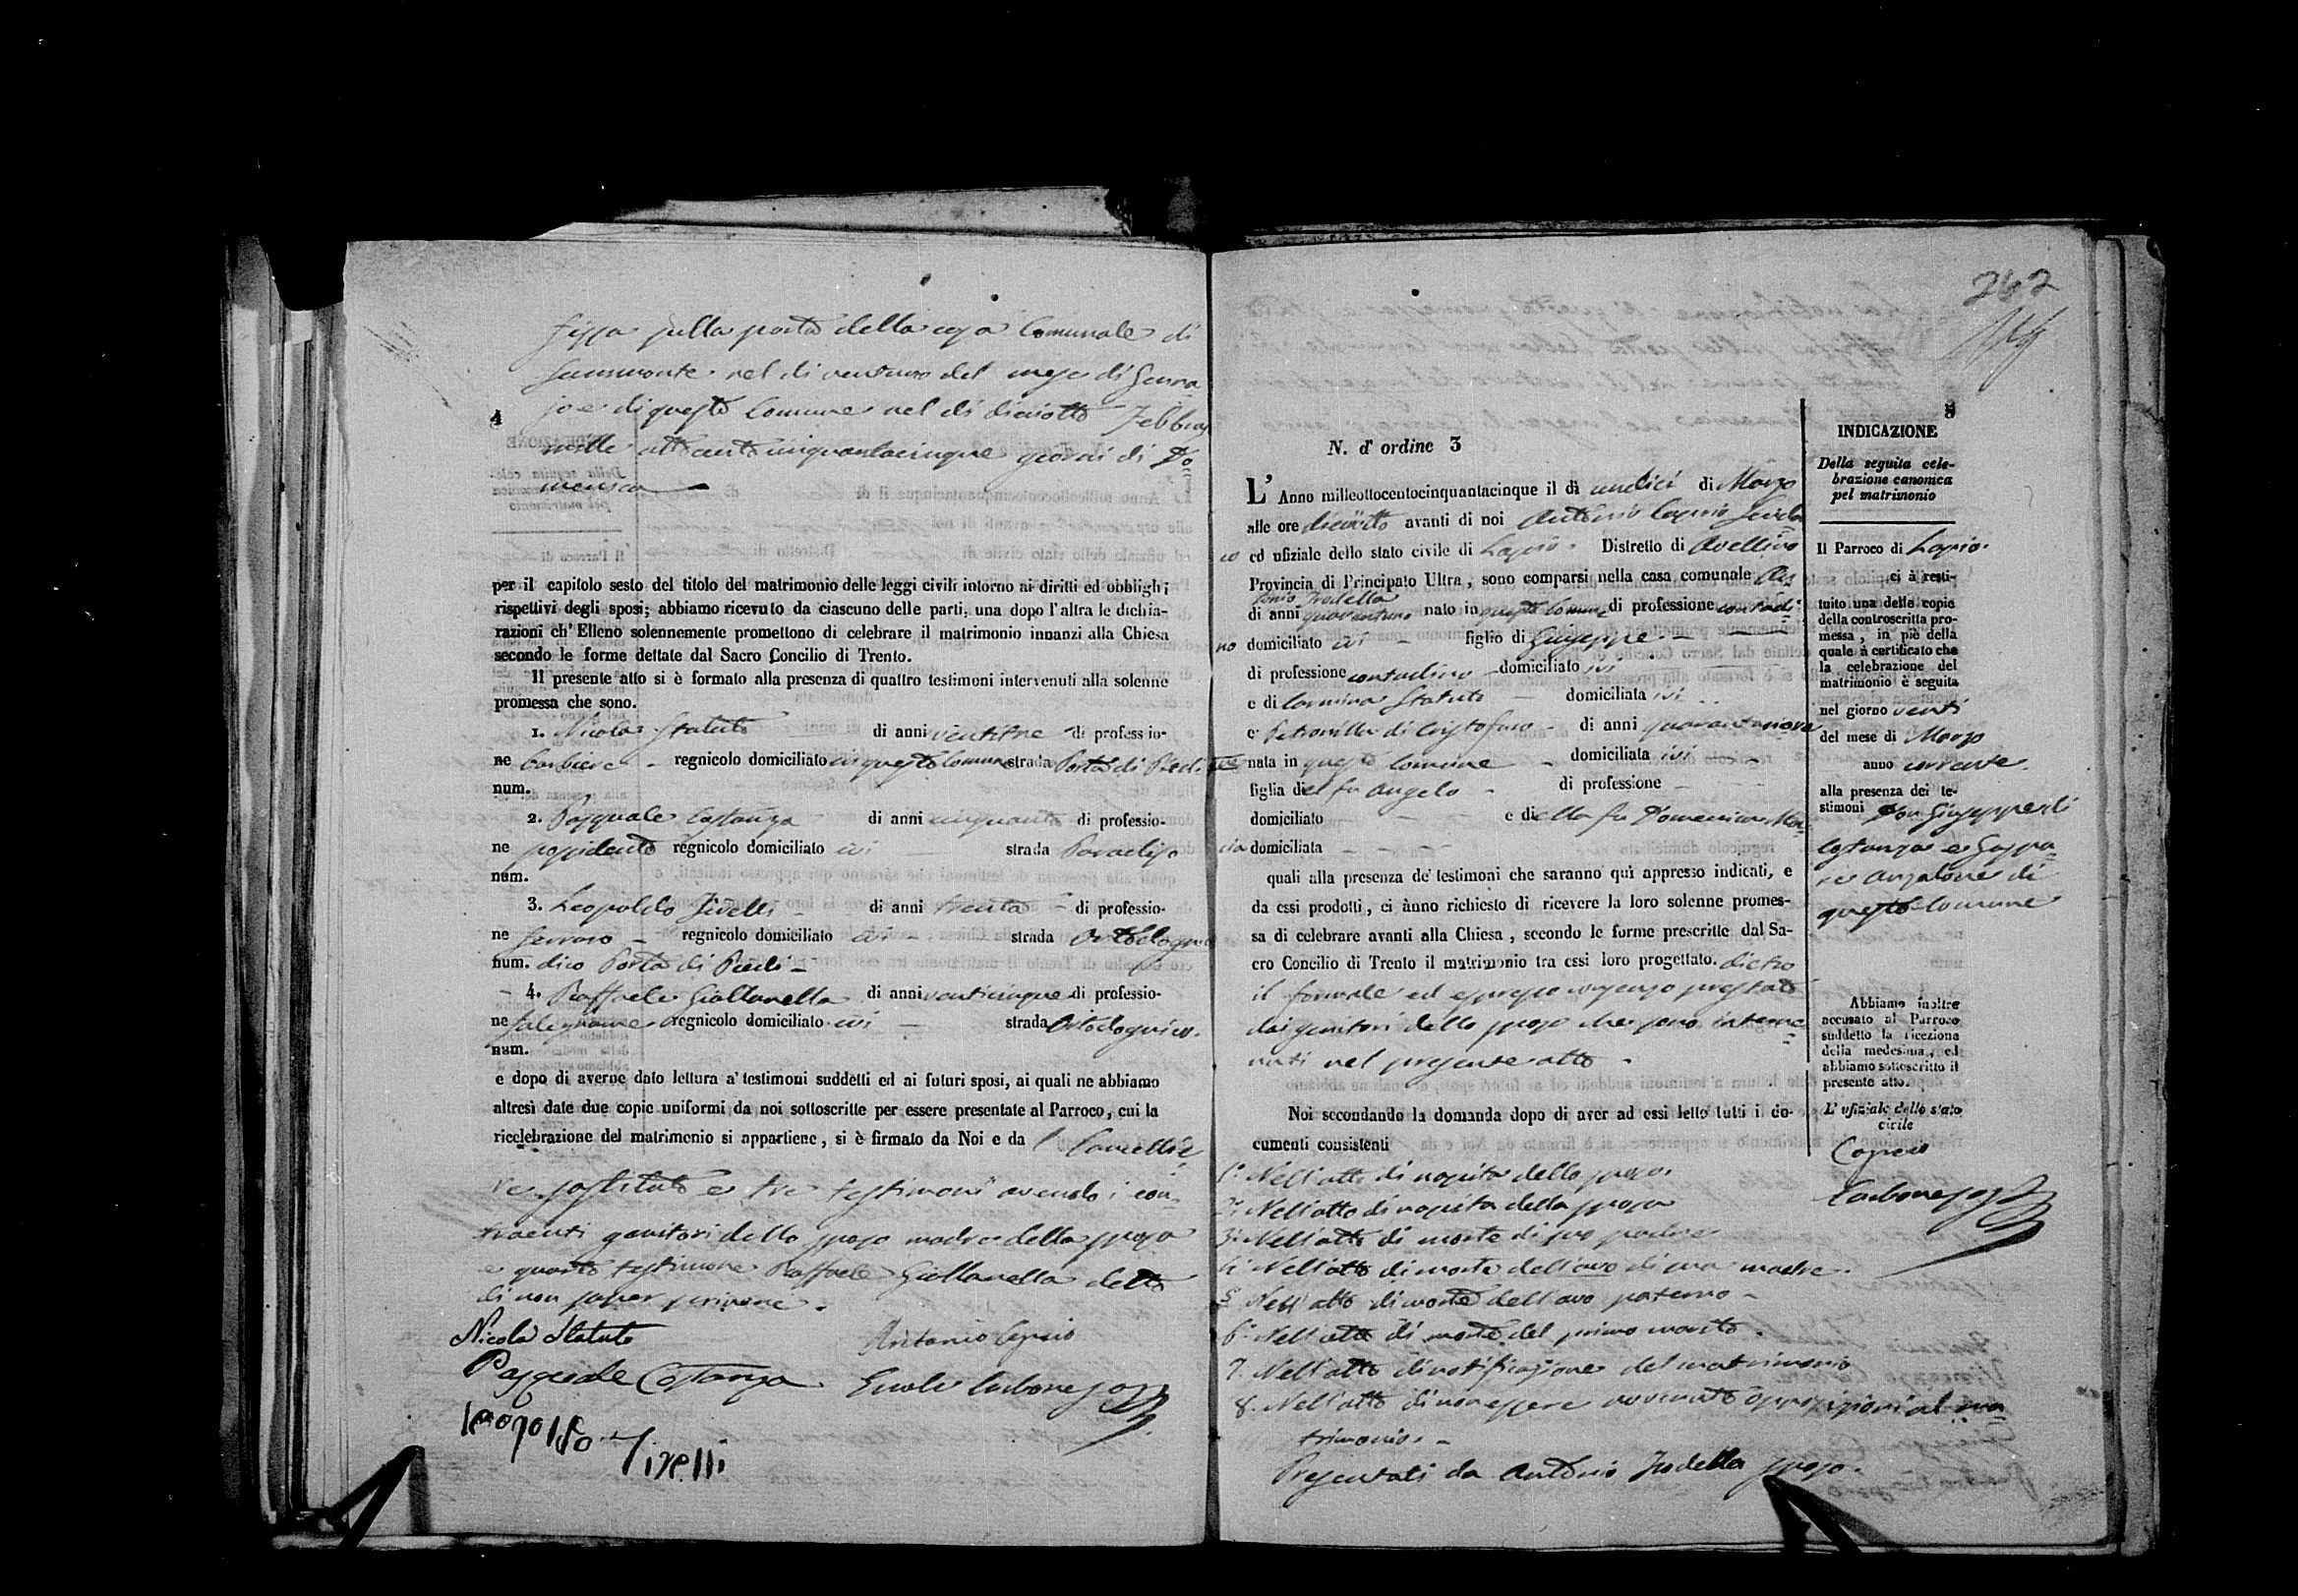 fissa sulla porta della casa Comunale di
Summonte nel di ventuno del mese di Genna
jo e di questo Comune nel di dieciotto Febbrajo
mille ottocento cinquantacinque giorni di Do
menica
4
per il capitolo sesto del titolo del matrimonio delle leggi civili intorno ai diritti ed obblighi
rispettivi degli sposi; abbiamo ricevuto da ciascuno delle parti, una dopo l'altra le dichia-
razioni ch'Elleno solennemente promettono di celebrare il matrimonio innanzi alla Chiesa
secondo le forme dettate dal Sacro Concilio di Trento.
Il presente atto si è formato alla presenza di quattro testimoni intervenuti alla solenne
promessa che sono.
1. Nicola Statuto di anni ventitre di professio-
ne barbiere regnicolo domiciliato in questo Comune strada Porta di Piedi
num.
2. Pasquale Costanza di anni cinquanta di professio-
ne possidente regnicolo domiciliato ivi strada Paradiso
num.
3. Leopoldo Tirelli di anni trenta di professio-
ne ferraro regnicolo domiciliato ivi strada
num. dico Porta di Piedi
4. Raffaele Giallanella di anni venticinque di professio-
ne falegname regnicolo domiciliato ivi strada
num.
e dopo di averne dato lettura a' testimoni suddetti ed ai futuri sposi, ai quali ne abbiamo
altresì date due copie uniformi da noi sottoscritte per essere presentate al Parroco, cui la
ricelebrazione del matrimonio si appartiene, si è firmato da Noi e da l Cancellie
re sostituto e tre testimoni avendo i con
traenti genitori dello sposo madre della sposa
e quarto testimone Raffaele Giallanella detto
di non saper scrivere.
Nicola Statuto Antonio Caprio
Pasquale Costanza Carbone
Leopoldo Tirelli
242
5
N. d' ordine 3
L' Anno milleottocentocinquantacinque il dì undici di Marzo
alle ore dieciotto avanti di noi Antonio Caprio Sinda
co ed ufiziale dello stato civile di Lapio Distretto di Avellino
Provincia di Principato Ultra, sono comparsi nella casa comunale An
tonio Trodella
di anni quarantuno nato in questo Comune di professione contadi
no domiciliato ivi figlio di Giuseppe
di professione contadino domiciliato ivi
e di Carmina Statuto domiciliata ivi
e Petronilla di Cristofano di anni quarantanove
nata in questo Comune domiciliata ivi
figlia del fu Angelo di professione
domiciliato e della fu Domenica
domiciliata
quali alla presenza de' testimoni che saranno quì appresso indicati, e
da essi prodotti, ci ànno richiesto di ricevere la loro solenne promes-
sa di celebrare avanti alla Chiesa, secondo le forme prescritte dal Sa-
cro Concilio di Trento il matrimonio tra essi loro progettato. dietro
il formale ed espresso consenso prestato
dai genitori dello sposo che sono interve
nuti nel presente atto.
Noi secondando la domanda dopo di aver ad essi letto tutti i do-
cumenti consistenti
1º Nell'atto di nascita dello sposo.
2º Nell'atto di nascita della sposa
3º Nell'atto di morte di suo padre
4º Nell'atto di morte dell'avo di sua madre.
5º Nell'atto di morte dell'avo paterno
6º Nell'atto di morte del primo marito.
7. Nell'atto di notificazione del matrimonio
8. Nell'atto di non essere avvenute opposizioni al ma
trimonio.
Presentati da Antonio Trodella sposo.
INDICAZIONE
Della seguita cele-
brazione canonica
pel matrimonio
Il Parroco di Lapio
ci à resti-
tuito una delle copie
della controscritta pro-
messa, in piè della
quale à certificato che
la celebrazione del
matrimonio è seguita
nel giorno venti
del mese di Marzo
anno corrente.
alla presenza dei te-
stimoni Don Giuseppe di
Costanza e Gaspa
re Anzalone di
questo Comune
Abbiamo inoltre
accusato al Parroco
suddetto la ricezione
della medesima, ed
abbiamo sottoscritto il
presente atto.
L' ufiziale dello stato
civile
Caprio
Carbone